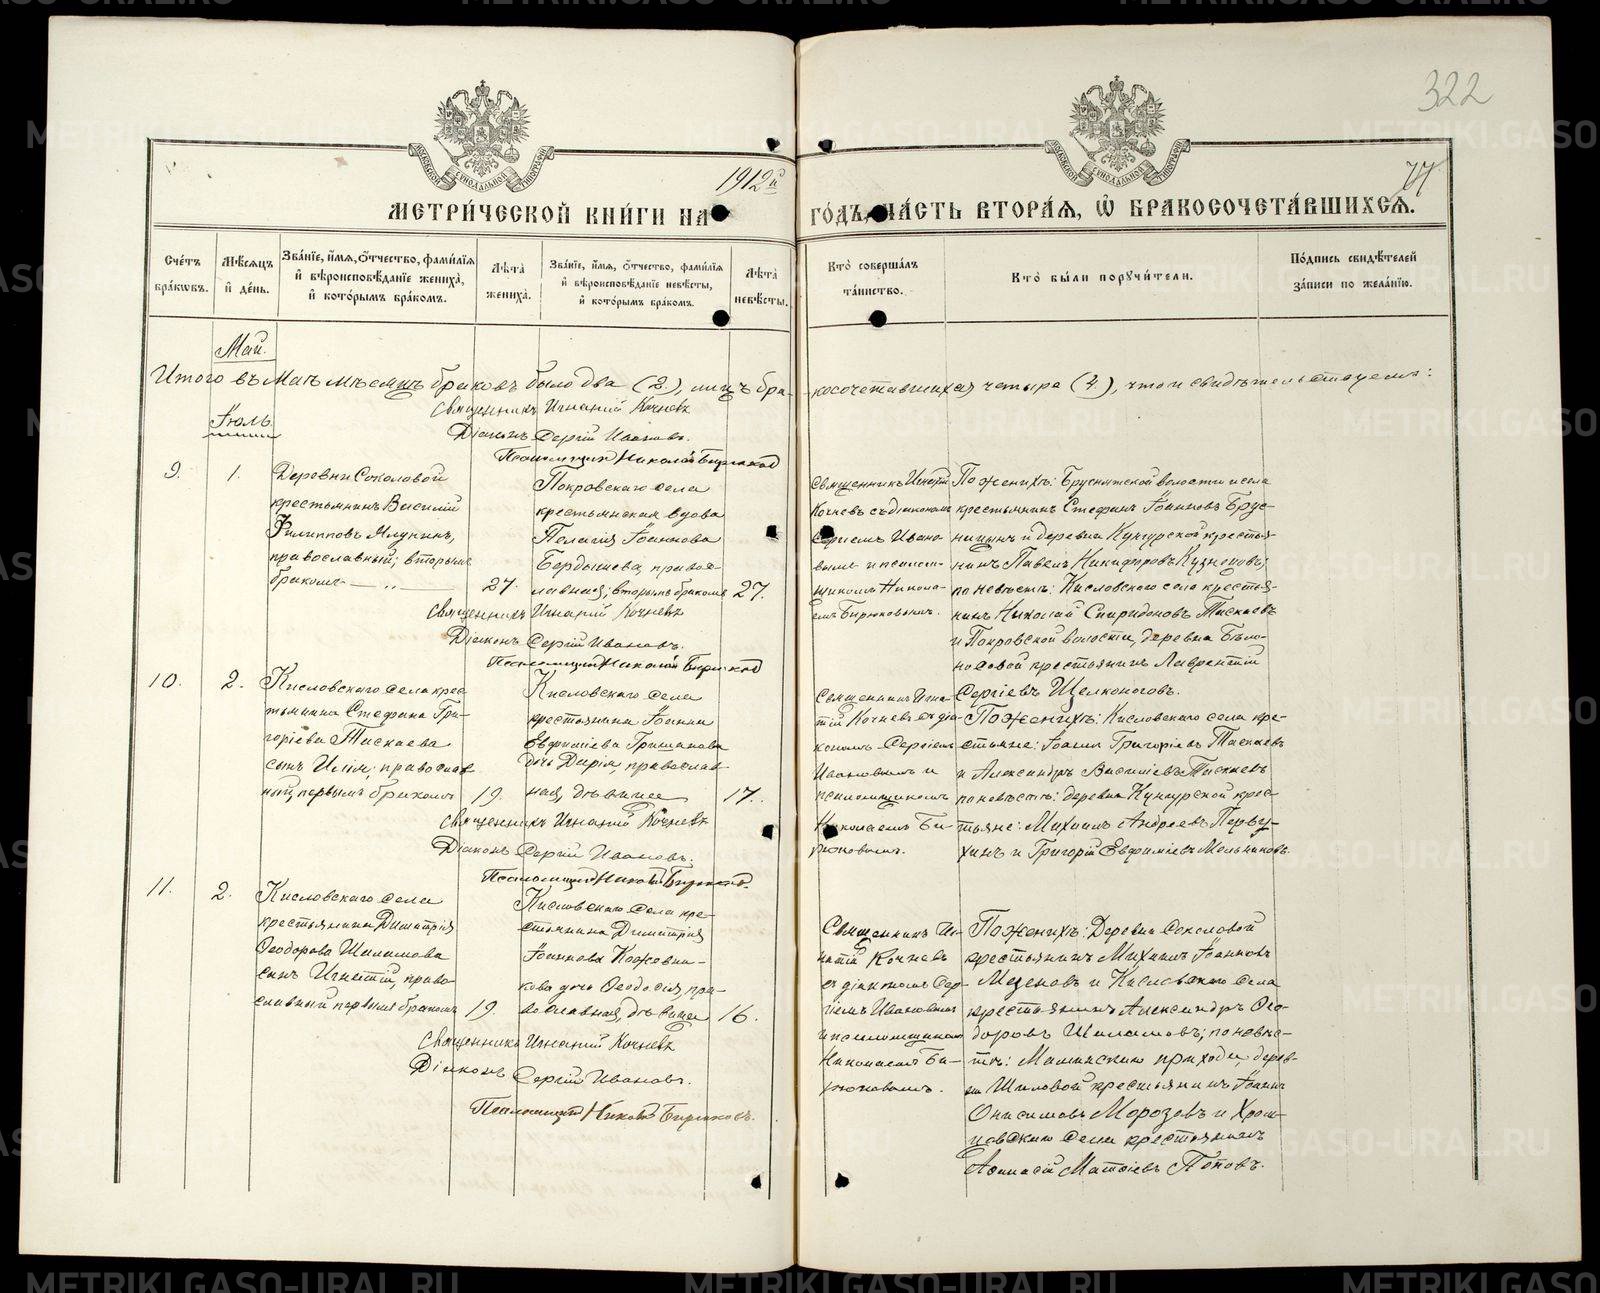 322
77
1912й
МЕТРИ́ЧЕСКОЙ КНИ́ГИ НА
ГО́ДЪ, ЧА́СТЬ ВТОРА́Я, Ѡ БРАКОСОЧЕТА́ВШИХСЯ.
Сче́тъ бра́кѡвъ.
Мѣ́сяцъ и де́нь.
Зва́нїе, и́мя, ѻ́тчество, фами́лїя и вѣроисповѣ́данїе жениха̀, и кото́рымъ бра́комъ.
Лѣ́та жениха̀.
Зва́нїе, и́мя, ѻ́тчество, фами́лїя и вѣроисповѣ́данїе невѣ́сты, и кото́рымъ бра́комъ.
Лѣ́та невѣ́сты.
Кто̀ соверша́лъ та́инство.
Кто̀ бы́ли поручи́тели.
По́дпись свидѣ́телей за́писи по жела́нїю.
Май.
Итого въ Маѣ мѣсяцѣ браковъ было два (2.), лицъ бра-
косочетавшихся четыре (4.), что и свидѣтельствуемъ:
Священникъ Игнатій Кочневъ
Діаконъ Сергій Ивановъ.
Псаломщикъ Николай Бирюковъ
Іюль
9.
1.
Деревни Соколовой
крестьянинъ Василій
Филипповъ
православный, вторымъ
бракомъ
27.
Покровскаго села
крестьянская вдова
Пелагія Іоаннова
Бердышева, право-
славная; вторымъ бракомъ
27.
Священникъ Игнатій
Кочневъ съ діакономъ
Сергіемъ Ивано-
вымъ и псалом-
щикомъ Никола-
емъ Бирюковымъ.
По женихѣ: Бруснятской волости и села
крестьянинъ Стефанъ Іоанновъ Брус-
ницынъ и деревни Кунгурской крестья-
нинъ Павелъ Никифоровъ Кузнецовъ;
по невѣстѣ: Кисловскаго села крестья-
нинъ Николай Спиридоновъ Таскаевъ
и Покровской волости, деревни Бѣло-
носовой крестьянинъ Лаврентій
Сергіевъ Щелконоговъ.
Священникъ Игнатій Кочневъ
Діаконъ Сергій Ивановъ.
Псаломщикъ Николай Бирюковъ
10.
2.
Кисловскаго села крес-
тьянина Стефана Гри-
горіева Таскаева
сынъ Илія, православ-
ный, первымъ бракомъ
19.
Кисловскаго села
крестьянина Іоанна
Евфиміева Гришанова
дочь Дарія, православ-
ная, дѣвица
17.
Священникъ Игна-
тій Кочневъ съ діа-
кономъ Сергіемъ
Ивановымъ и
псаломщикомъ
Николаемъ Би-
рюковымъ.
По женихѣ: Кисловскаго села кре-
стьяне: Іоаннъ Григоріевъ Таскаевъ
и Александръ Василіевъ Таскаевъ
по невѣстѣ: деревни Кунгурской крес-
тьяне: Михаилъ Андреевъ Перву-
хинъ и Григорій Евфиміевъ Мельниковъ.
Священникъ Игнатій Кочневъ
Діаконъ Сергій Ивановъ.
Псаломщикъ Николай Бирюковъ.
11.
2.
Кисловскаго села
крестьянина Димитрія
Ѳеодорова Шаламова
сынъ Игнатій, право-
славный первымъ бракомъ
19.
Кисловскаго села кре-
стьянина Димитрія
Іоаннова Кожевни-
кова дочь Ѳеодосія, пра-
вославная, дѣвица
16.
Священникъ Иг-
натій Кочневъ
съ діакономъ Сер-
гіемъ Ивановымъ
и псаломщикомъ
Николаемъ Би-
рюковымъ.
По женихѣ: Деревни Соколовой
крестьянинъ Михаилъ Іоанновъ
Мезеновъ и Кисловскаго села
крестьянинъ Александръ Ѳео-
доровъ Шаламовъ; по невѣс-
тѣ: Маминскаго прихода, дерев-
ни Шиловой крестьянинъ Іоаннъ
Онисимовъ Морозовъ и
села крестьянинъ
Аѳанасій Матѳіевъ Поповъ.
Священникъ Игнатій Кочневъ
Діаконъ Сергій Ивановъ.
Псаломщикъ Николай Бирюковъ.
METRIKI.GASO-URAL.RU